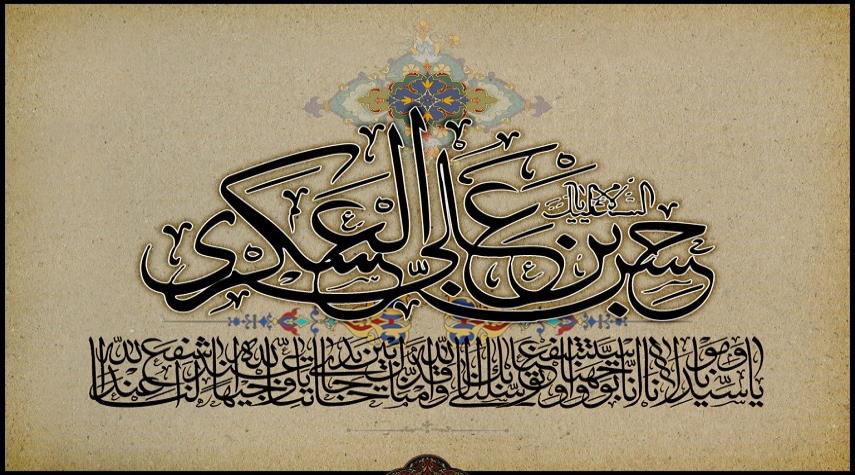 السلام علیک
حسن بن علی العسکری
یا سیدنا و مولانا انا توجهنا و استشفعنا و توسلنا بک الی الله و قدمناک بین یدی حاجاتنا یا وجیها عند الله اشفع لنا عند الله